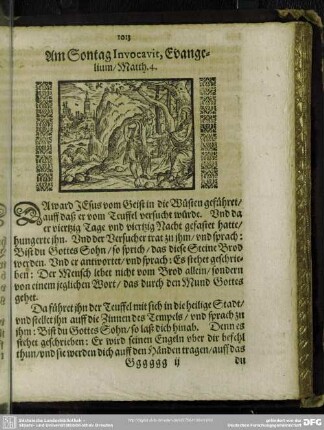 1013
Am Sontag Invocavit, Evange-
lium/ Matth. 4.
DA ward JEsus vom Geist in die Wüsten geführet/
auff daß er vom Teuffel versucht würde. Und da
er viertzig Tage und viertzig Nacht gefastet hatte/
hungerte ihn. Und der Versucher trat zu ihm/ und sprach:
Bist du Gottes Sohn/ so sprich/ das diese Steine Brod
werden. Und er antwortet/ und sprach: Es stehet geschrie-
ben: Der Mensch lebet nicht vom Brod allein/ sondern
von einem jeglichen Wort/ das durch den Mund Gottes
gehet.
Da führet ihn der Teuffel mit sich in die heilige Stadt/
und stellet ihn auff die Zinnen des Tempels/ und sprach zu
ihm: Bist du Gottes Sohn/ so laß dich hinab. Denn es
stehet geschrieben: Er wird seinen Engeln über dir befehl
thun/ und sie werden dich auff den Händen tragen/ auff das
Ggggggg ij du
Sächsische Landesbibliothek
Staats- und Universitätsbibliothek Dresden
gefördert von der
Deutschen Forschungsgemeinschaft